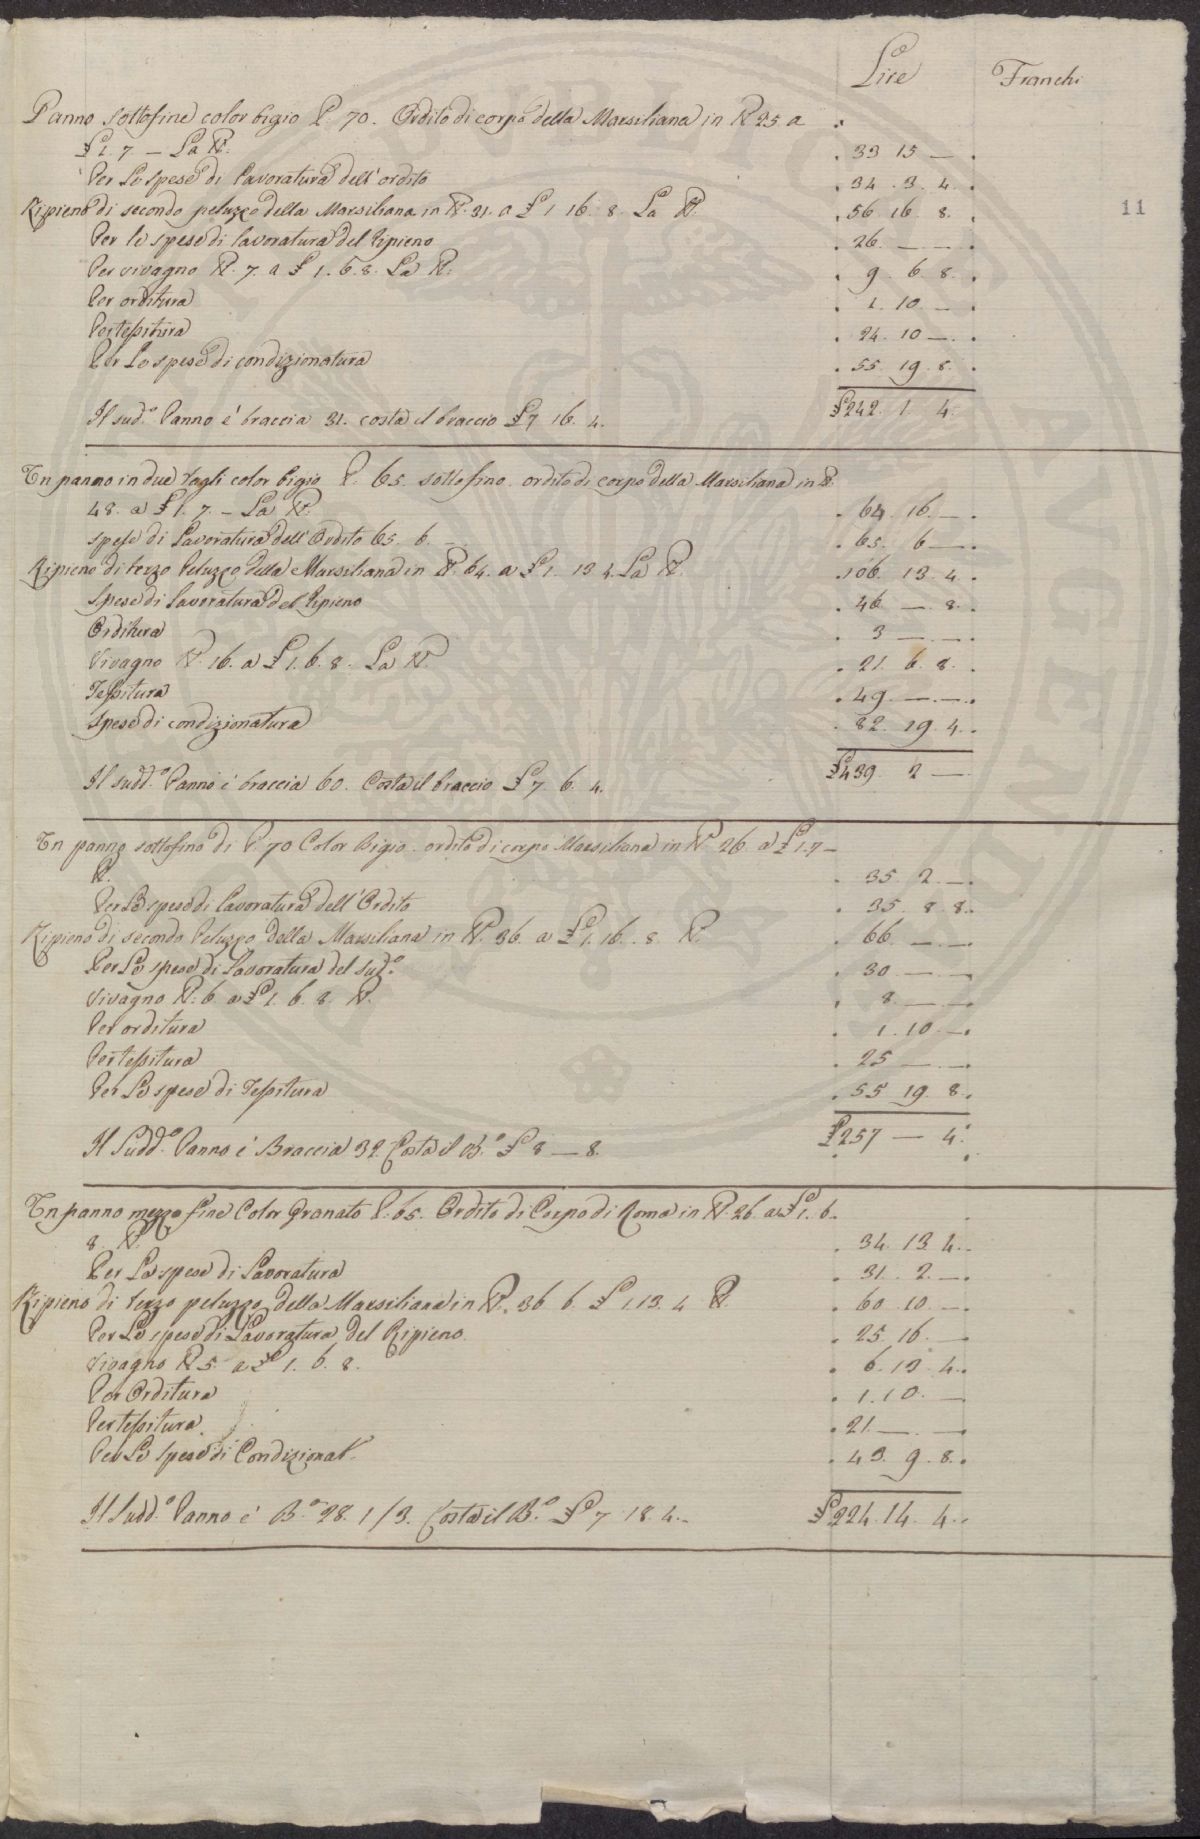 Lire Franchi
11
Panno sottofine color bigio P. 70. Ordito di corpo della Marsiliana in lb 25 a
£ 1. 7 — La lb. . 33 15 — .
Per Le spese di Lavoratura dell'ordito . 34 . 3 . 4 .
Ripieno di secondo peluzzo della Marsiliana in lb. 31. a £ 1 16. 8. La lb. . 56 16 8 .
Per le spese di lavoratura del Ripieno . 26 . — — .
Per vivagno lb. 7. a £ 1. 6. 8. La lb. . 9 . 6 8 .
Per orditura . 1. 10 — .
Per tessitura . 24. 10 — .
Per Le spese di condizionatura . 55. 19. 8 .
Il sud.º Panno è braccia 31. costa il braccio £ 7 16. 4. £ 242. 1. 4.
Un panno in due tagli color bigio P. 65. sottofino ordito di corpo della Marsiliana in lb.
48. a £ 1. 7. — La lb. . 64. 16. — .
spese di Lavoratura dell'Ordito 65. 6. — . 65. 6 — .
Ripieno di terzo Peluzzo della Marsiliana in lb. 64. a £ 1. 13 4. La lb. . 106. 13. 4 .
Spese di lavoratura del Ripieno . 46 — 8 .
Orditura . 3 — — .
Vivagno lb. 16. a £ 1. 6. 8. La lb. . 21. 6. 8 .
Tessitura . 49. — — .
Spese di condizionatura . 82. 19. 4 .
Il sudd.º Panno è braccia 60. Costa il braccio £ 7. 6. 4. £ 439. 2 —
Un panno sottofino di P. 70 Color Bigio. ordito di corpo Marsiliana in lb 26. a £ 1. 7 —
lb. . 35. 2. — .
Per Le spese di Lavoratura dell'Ordito . 35. 8 8 .
Ripieno di secondo Peluzzo della Marsiliana in lb. 36. a £ 1. 16. 8. lb. . 66. — —
Per Le spese di Lavoratura del sud.º . 30. — —
Vivagno lb. 6 a £ 1. 6. 8. lb. . 8 — —
Per orditura . 1. 10. — .
Per tessitura . 25 — — .
Per Le spese di Tessitura . 55 19. 8 .
Il Sudd.º Panno è Braccia 32. Costa il B.º £ 8 — 8. £ 257 — 4.
Un panno mezzo fine Color Granato P. 65. Ordito di Corpo di Roma in lb 26. a £ 1. 6.
8. lb. . 34. 13 4 .
Per Le spese di Lavoratura . 31. 2. — .
Ripieno di terzo peluzzo della Marsiliana in lb. 36 6. £ 1. 13. 4 lb. . 60 10. — .
Per Le spese di Lavoratura del Ripieno . 25. 16. —
Vivagno lb. 5. a £ 1. 6. 8. . 6. 13 4 .
Per Orditura . 1. 10. —
Per tessitura . 21. — —
Per Le spese di Condizionat.ª . 43. 9. 8 .
Il Sudd.º Panno è B.ª 28. 1/3. Costa il B.º £ 7. 18. 4. £ 224. 14. 4 .